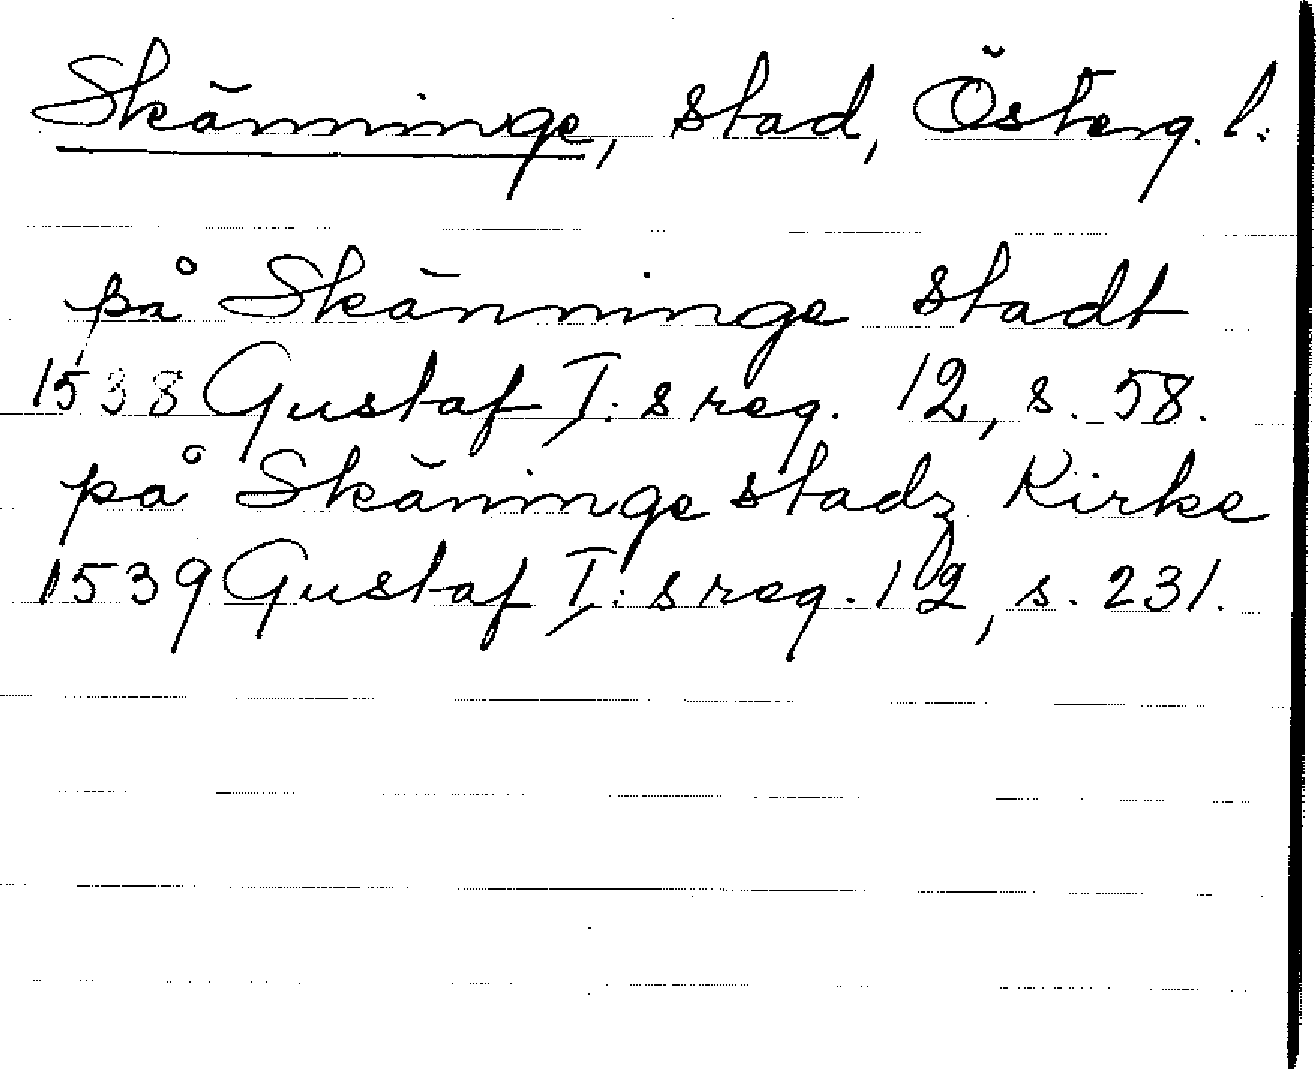 Skänninge, stad, Österg. l.
på Skänninge stadt
1538 Gustaf I:s reg. 12, s. 58.
på Skäninge stadz Kirke
1539 Gustaf I:s reg. 12, s. 231.